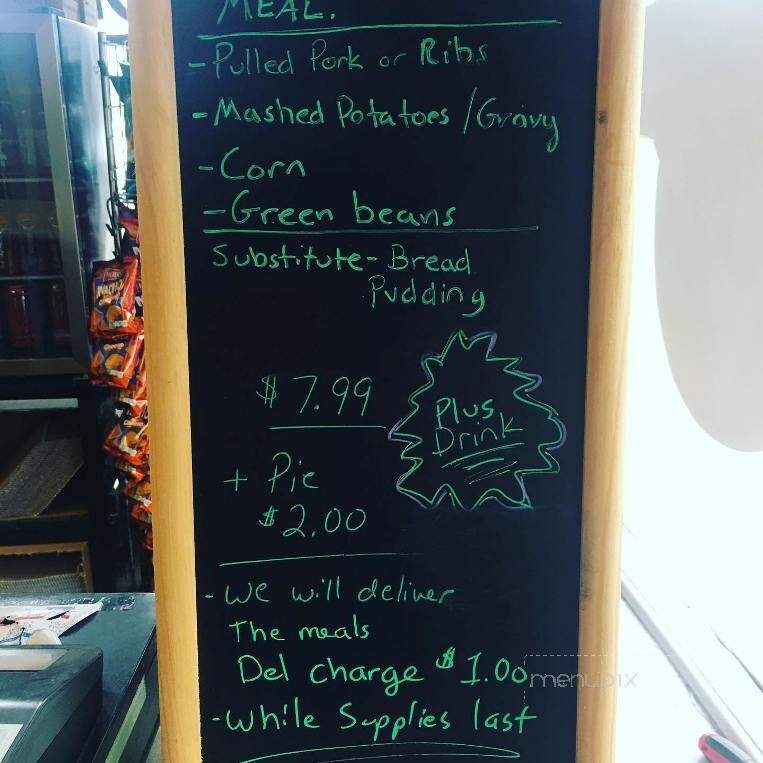 MEAL.
- Pulled Pork or Ribs
- Mashed Potatoes / Gravy
- Corn
- Green beans
Substitute - Bread
Pudding
$7.99
Plus
Drink
+ Pie
$2.00
- We will deliver
The meals
Del charge $1.00
- While Supplies last
menupix